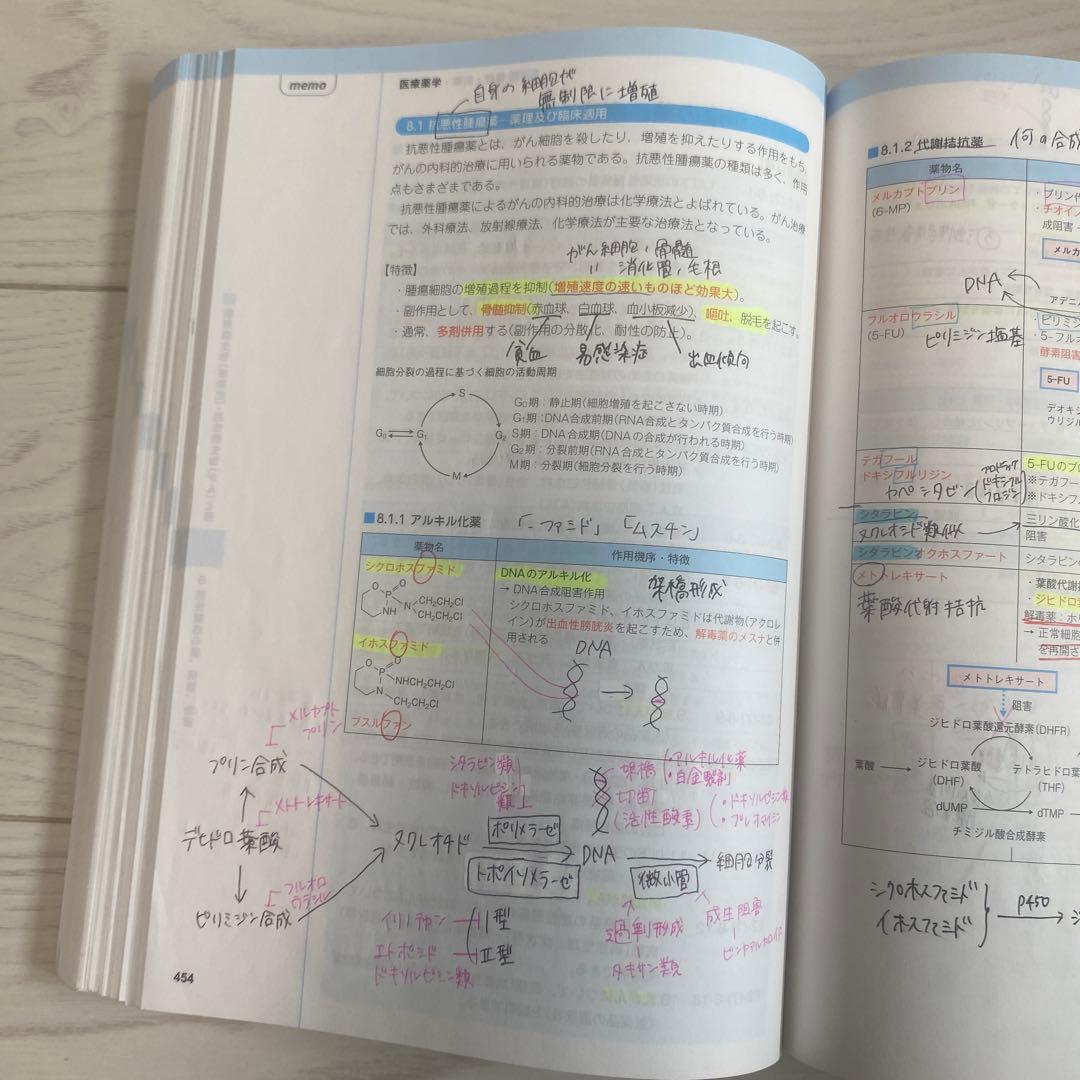 memo
医療薬学
自身の細胞が
無制限に増殖
8.1 抗悪性腫瘍薬－薬理及び臨床適用
抗悪性腫瘍薬とは、がん細胞を殺したり、増殖を抑えたりする作用をもち、
がんの内科的治療に用いられる薬物である。抗悪性腫瘍薬の種類は多く、作用
点もさまざまである。
抗悪性腫瘍薬によるがんの内科的治療は化学療法とよばれている。がん治療
では、外科療法、放射線療法、化学療法が主要な治療法となっている。
がん細胞、骨髄
〃 消化管、毛根
【特徴】
・腫瘍細胞の増殖過程を抑制(増殖速度の速いものほど効果大)。
・副作用として、骨髄抑制(赤血球、白血球、血小板減少)、嘔吐、脱毛を起こす。
・通常、多剤併用する(副作用の分散化、耐性の防止)。
貧血 易感染症 出血傾向
細胞分裂の過程に基づく細胞の活動周期
S
G0 G1 G2
M
G0期：静止期(細胞増殖を起こさない時期)
G1期：DNA合成前期(RNA合成とタンパク質合成を行う時期)
S期：DNA合成期(DNAの合成が行われる時期)
G2期：分裂前期(RNA合成とタンパク質合成を行う時期)
M期：分裂期(細胞分裂を行う時期)
■8.1.1 アルキル化薬 「-ファミド」 「ムスチン」
薬物名 作用機序・特徴
シクロホスファミド
O
P
NH
N
CH2CH2Cl
CH2CH2Cl
イホスファミド
O
O
P
NHCH2CH2Cl
N
CH2CH2Cl
ブスルファン
DNAのアルキル化 架橋形成
→ DNA合成阻害作用
シクロホスファミド、イホスファミドは代謝物(アクロレ
イン)が出血性膀胱炎を起こすため、解毒薬のメスナと併
用される
DNA
メルカプト
プリン
プリン合成
メトトレキサート
デヒドロ葉酸
フルオロ
ウラシル
ピリミジン合成
シタラビン類
ドキソルビシン
類
ヌクレオチド
ポリメラーゼ
トポイソメラーゼ
DNA
微小管
細胞分裂
架橋
・アルキル化薬
・白金製剤
切断
(活性酸素)
・ドキソルビシン類
・ブレオマイシン
イリノテカン Ⅰ型
エトポシド Ⅱ型
ドキソルビシン類
過剰形成
タキサン類
成生阻害
ビンカアルカロイド
454
■8.1.2 代謝拮抗薬 何の合成
薬物名
メルカプトプリン
(6-MP)
・プリン代
・チオイノ
成阻害
メルカ
DNA
アデニ
フルオロウラシル
(5-FU)
ピリミジン塩基
・ピリミジ
・5-フルオ
酵素阻害
5-FU
デオキシ
ウリジル
テガフール
ドキシフルリジン
カペシタビン
プロドラッグ
ドキシフル
5-FUのプロ
※テガフー
※ドキシフ
シタラビン
ヌクレオシド類似
三リン酸化
阻害
シタラビンオクホスファート
シタラビンの
メトトレキサート
葉酸代謝拮抗
・葉酸代謝拮
・ジヒドロ
解毒薬：ホ
→ 正常細胞
を再開さ
メトトレキサート
阻害
ジヒドロ葉酸還元酵素(DHFR)
葉酸
ジヒドロ葉酸
(DHF)
テトラヒドロ葉
(THF)
dUMP
dTMP
チミジル酸合成酵素
シクロホスファミド
イホスファミド
P450